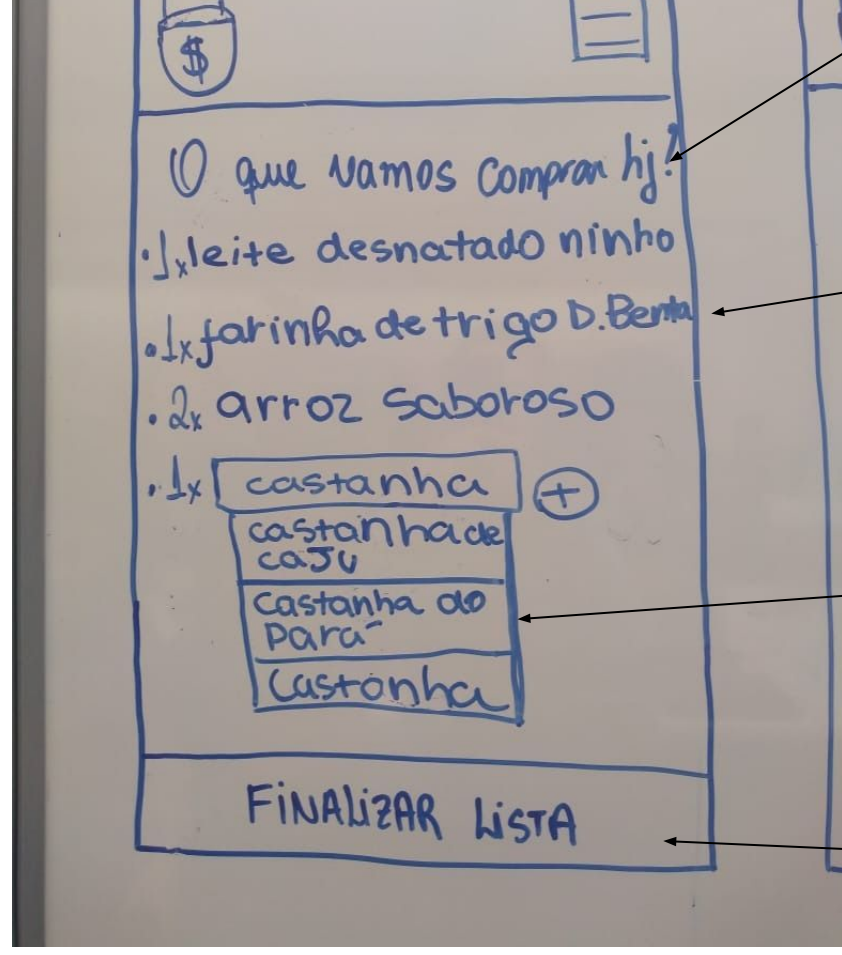 $
O que vamos comprar hj?
.1x leite desnatado ninho
.1x farinha de trigo D.Benta
.2x arroz saboroso
.1x castanha +
castanha de
caju
castanha do
Pará
Castanha
FINALIZAR LISTA